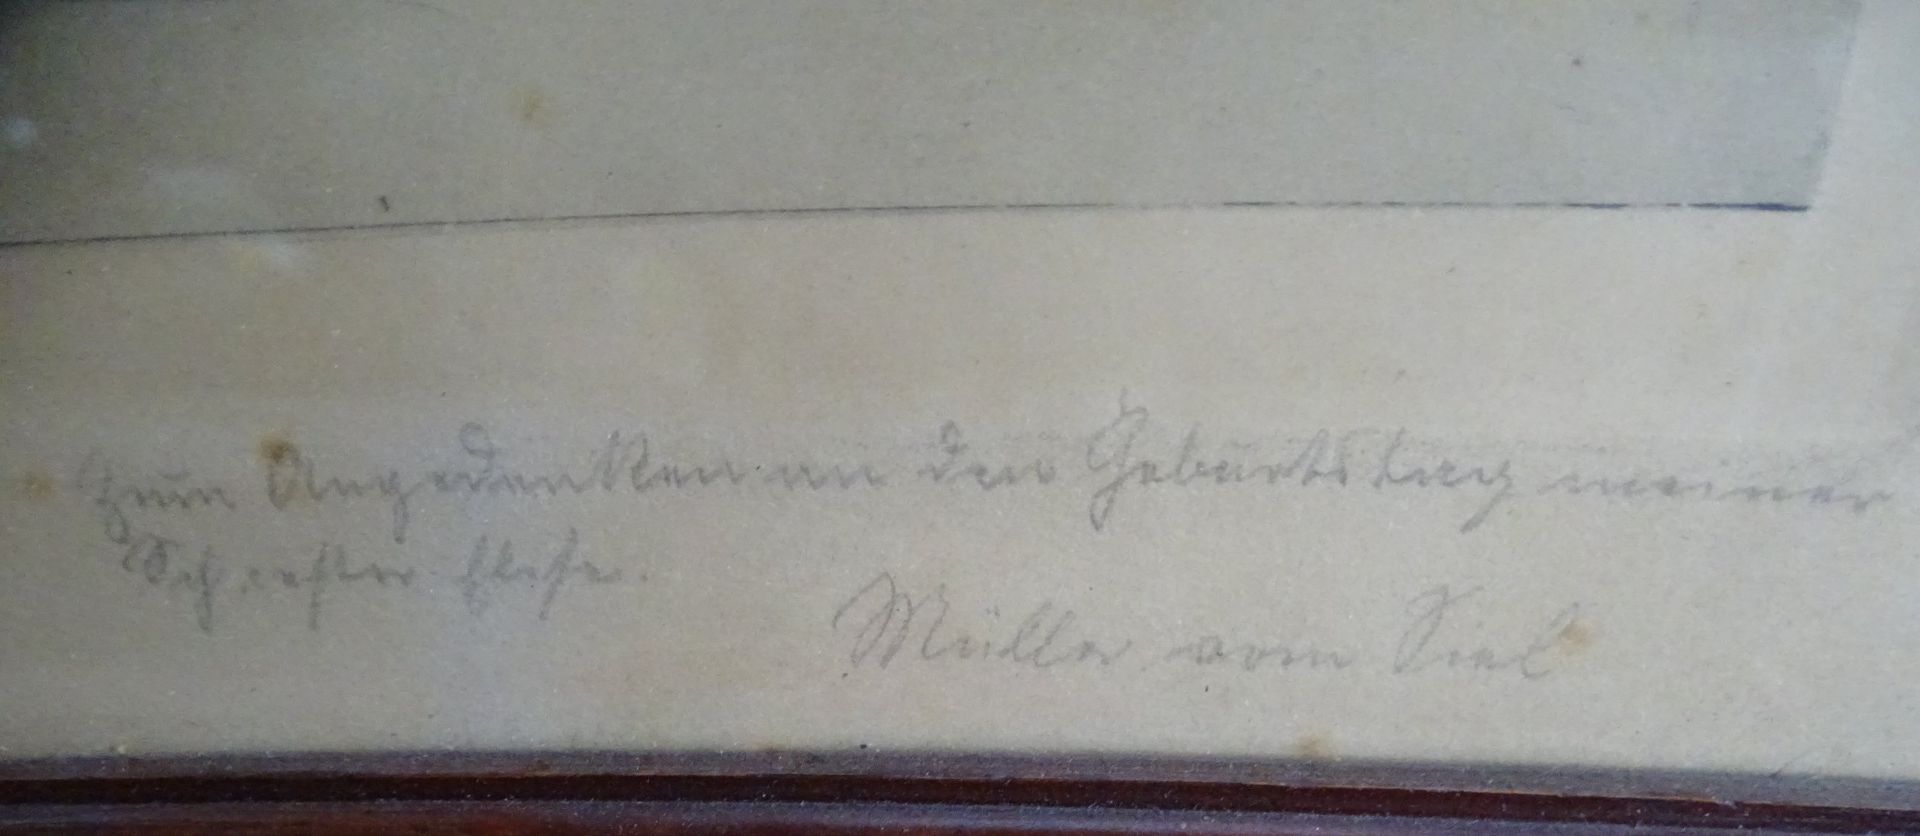 Zum Angedenken an den Geburtstag meiner
Schwester Else.
Müller vom Siel